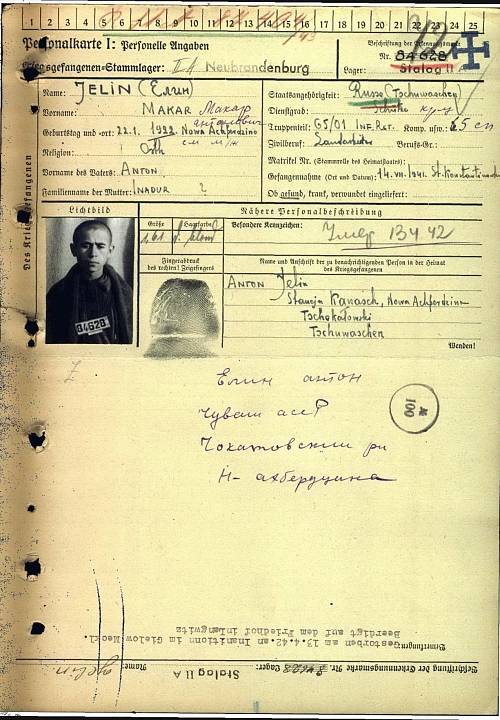 1 2 3 4 5 6 7 8 9 10 11 12 13 14 15 16 17 18 19 20 21 22 23 24 25
Personalkarte I: Personelle Angaben
Beschriftung der Erkennungsmarke
Nr. 84628
Kriegsgefangenen-Stammlager: II A Neubrandenburg
Lager: Stalag II A
Des Kriegsgefangenen
Name: JELIN (Елин)
Staatsangehörigkeit: Russe (Tschuwaschen)
Vorname: MAKAR Макар
Dienstgrad: Schütze
Антонович
Geburtstag und -ort: 22.1. 1922. Nowa Achperdino
Truppenteil: 65/01 INF. RGT. Komp. usw.:
Religion: Orth
Zivilberuf: Landarbeiter Berufs-Gr.:
Matrikel Nr. (Stammrolle des Heimatstaates):
Vorname des Vaters: ANTON
Gefangennahme (Ort und Datum): 14. VII. 1941. St. Konstantinow
Familienname der Mutter: INADUR ?
Ob gesund, krank, verwundet eingeliefert:
Lichtbild
Nähere Personalbeschreibung
Größe
Haarfarbe
Besondere Kennzeichen: Умер 13 4 42
1,61 d. blond
Fingerabdruck
des rechten! Zeigefingers
Name und Anschrift der zu benachrichtigenden Person in der Heimat
des Kriegsgefangenen
ANTON Jelin
Stanzja Kanasch, Nowa Achperdino
Tschokalowski
Tschuwaschen
84628
Wenden!
Елин Антон
Чуваш АССР
Чокаловский р-н
Н- Ахбердцина
100
Bemerkungen:
Gestorben am 13.4.42 an Inanition in Gielow Meckl.
Beerdigt auf dem Friedhof in Langwitz
Beschriftung der Erkennungsmarke Nr. 84628 Lager: Stalag II A
Name: Jelin